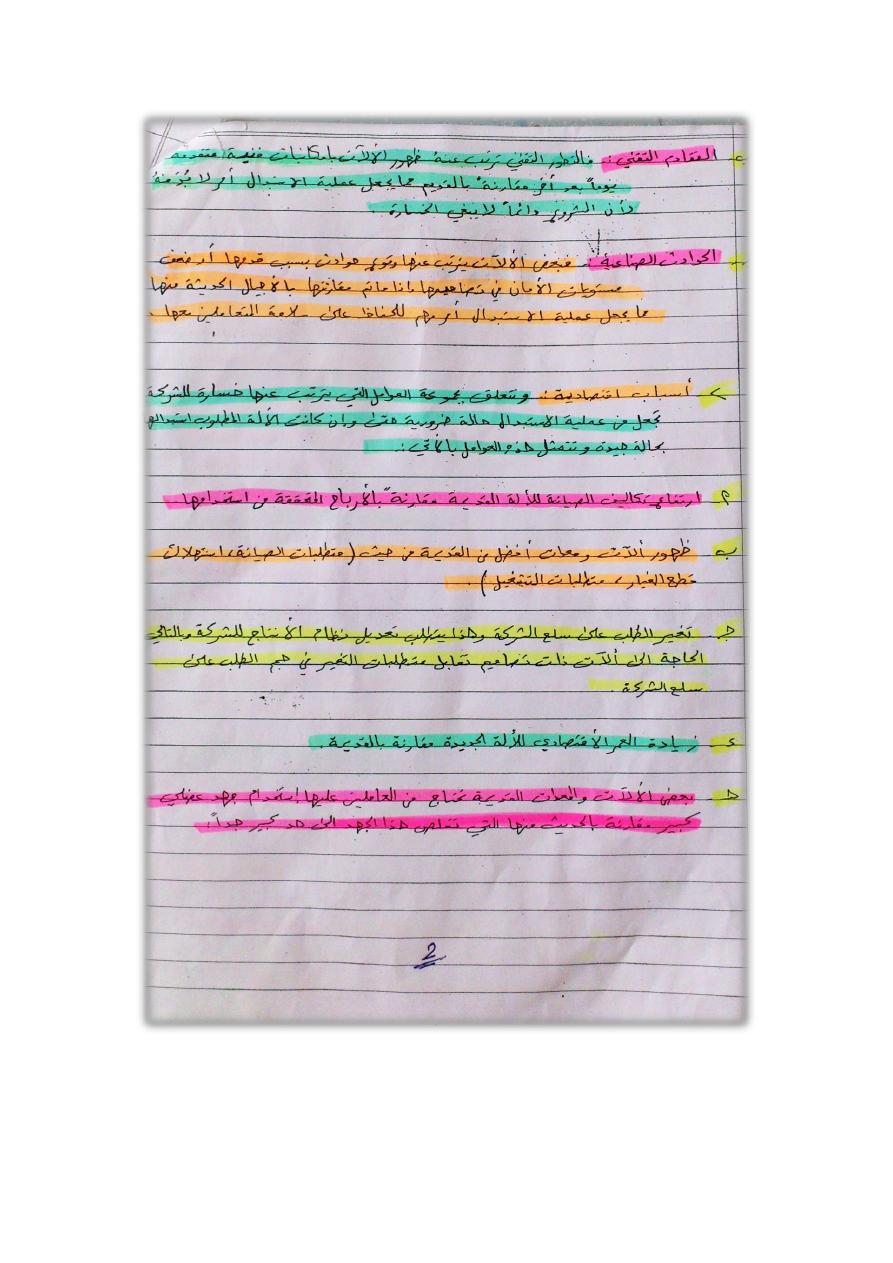 ب- التقادم التقني :. فالتطور التقني ترتب عنه ظهور الألآت بامكانيات فنية متقدمة
يوماً بعد أخر مقارنة بالقديم مما يجعل عملية الاستبدال أمر لا بُد منهُ
المشروع دائماً لا يبغي الخسارة .
الحوادث الصناعية : فبعض الألآت يترتب عنها وقوع حوادث بسبب قدمها أو ضعف
مستويات الأمان في تصاميمها اذا ماتم مقارنتها بالأجيال الحديثة منها
مما يجعل عملية الاستبدال أمر مهم للحفاظ على سلامة المتعاملين معها .
أسباب اقتصادية :. وتتعلق بمجموعة العوامل التي يترتب عنها خسارة للشركة
تجعل من عملية الاستبدال حالة ضرورية حتى وان كانت الألة المطلوب استبدالها
بحالة جيدة وتتمثل هذه العوامل بالأتي :.
ارتفاع تكاليف الصيانة للألة القديمة مقارنة بالأرباح المتحققة من استخدامها .
ب- ظهور ألآت ومعدات أفضل من القديمة من حيث ( متطلبات الصيانة ، استهلاك
قطع الغيار ، متطلبات التشغيل ) .
ج- تغير الطلب على سلع الشركة وهذا يتطلب تعديل نظام الأنتاج للشركة وبالتالي
الحاجة الى ألآت ذات تصاميم تقابل متطلبات التغير في حجم الطلب على
سلع الشركة
د- زيادة العمر الأقتصادي للألة الجديدة مقارنة بالقديمة .
هـ- بعض الألآت والمعدات القديمة تحتاج من العاملين عليها استخدام جهد عضلي
كبير مقارنة بالحديث منها التي تقلص هذا الجهد الى حد كبير جداً .
2